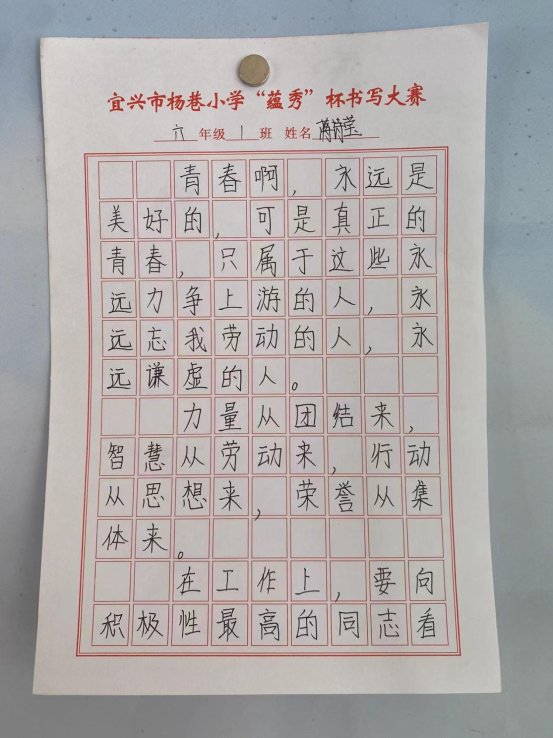 宜兴市杨巷小学“蕴秀”杯书写大赛
六年级1班 姓名
青春啊,永远是
美好的,可是真正的
青春,只属于这些永
远力争上游的人,永
远忘我劳动的人,永
远谦虚的人。
力量从团结来,
智慧从劳动来,行动
从思想来,荣誉从集
体来。
在工作上,要向
积极性最高的同志看